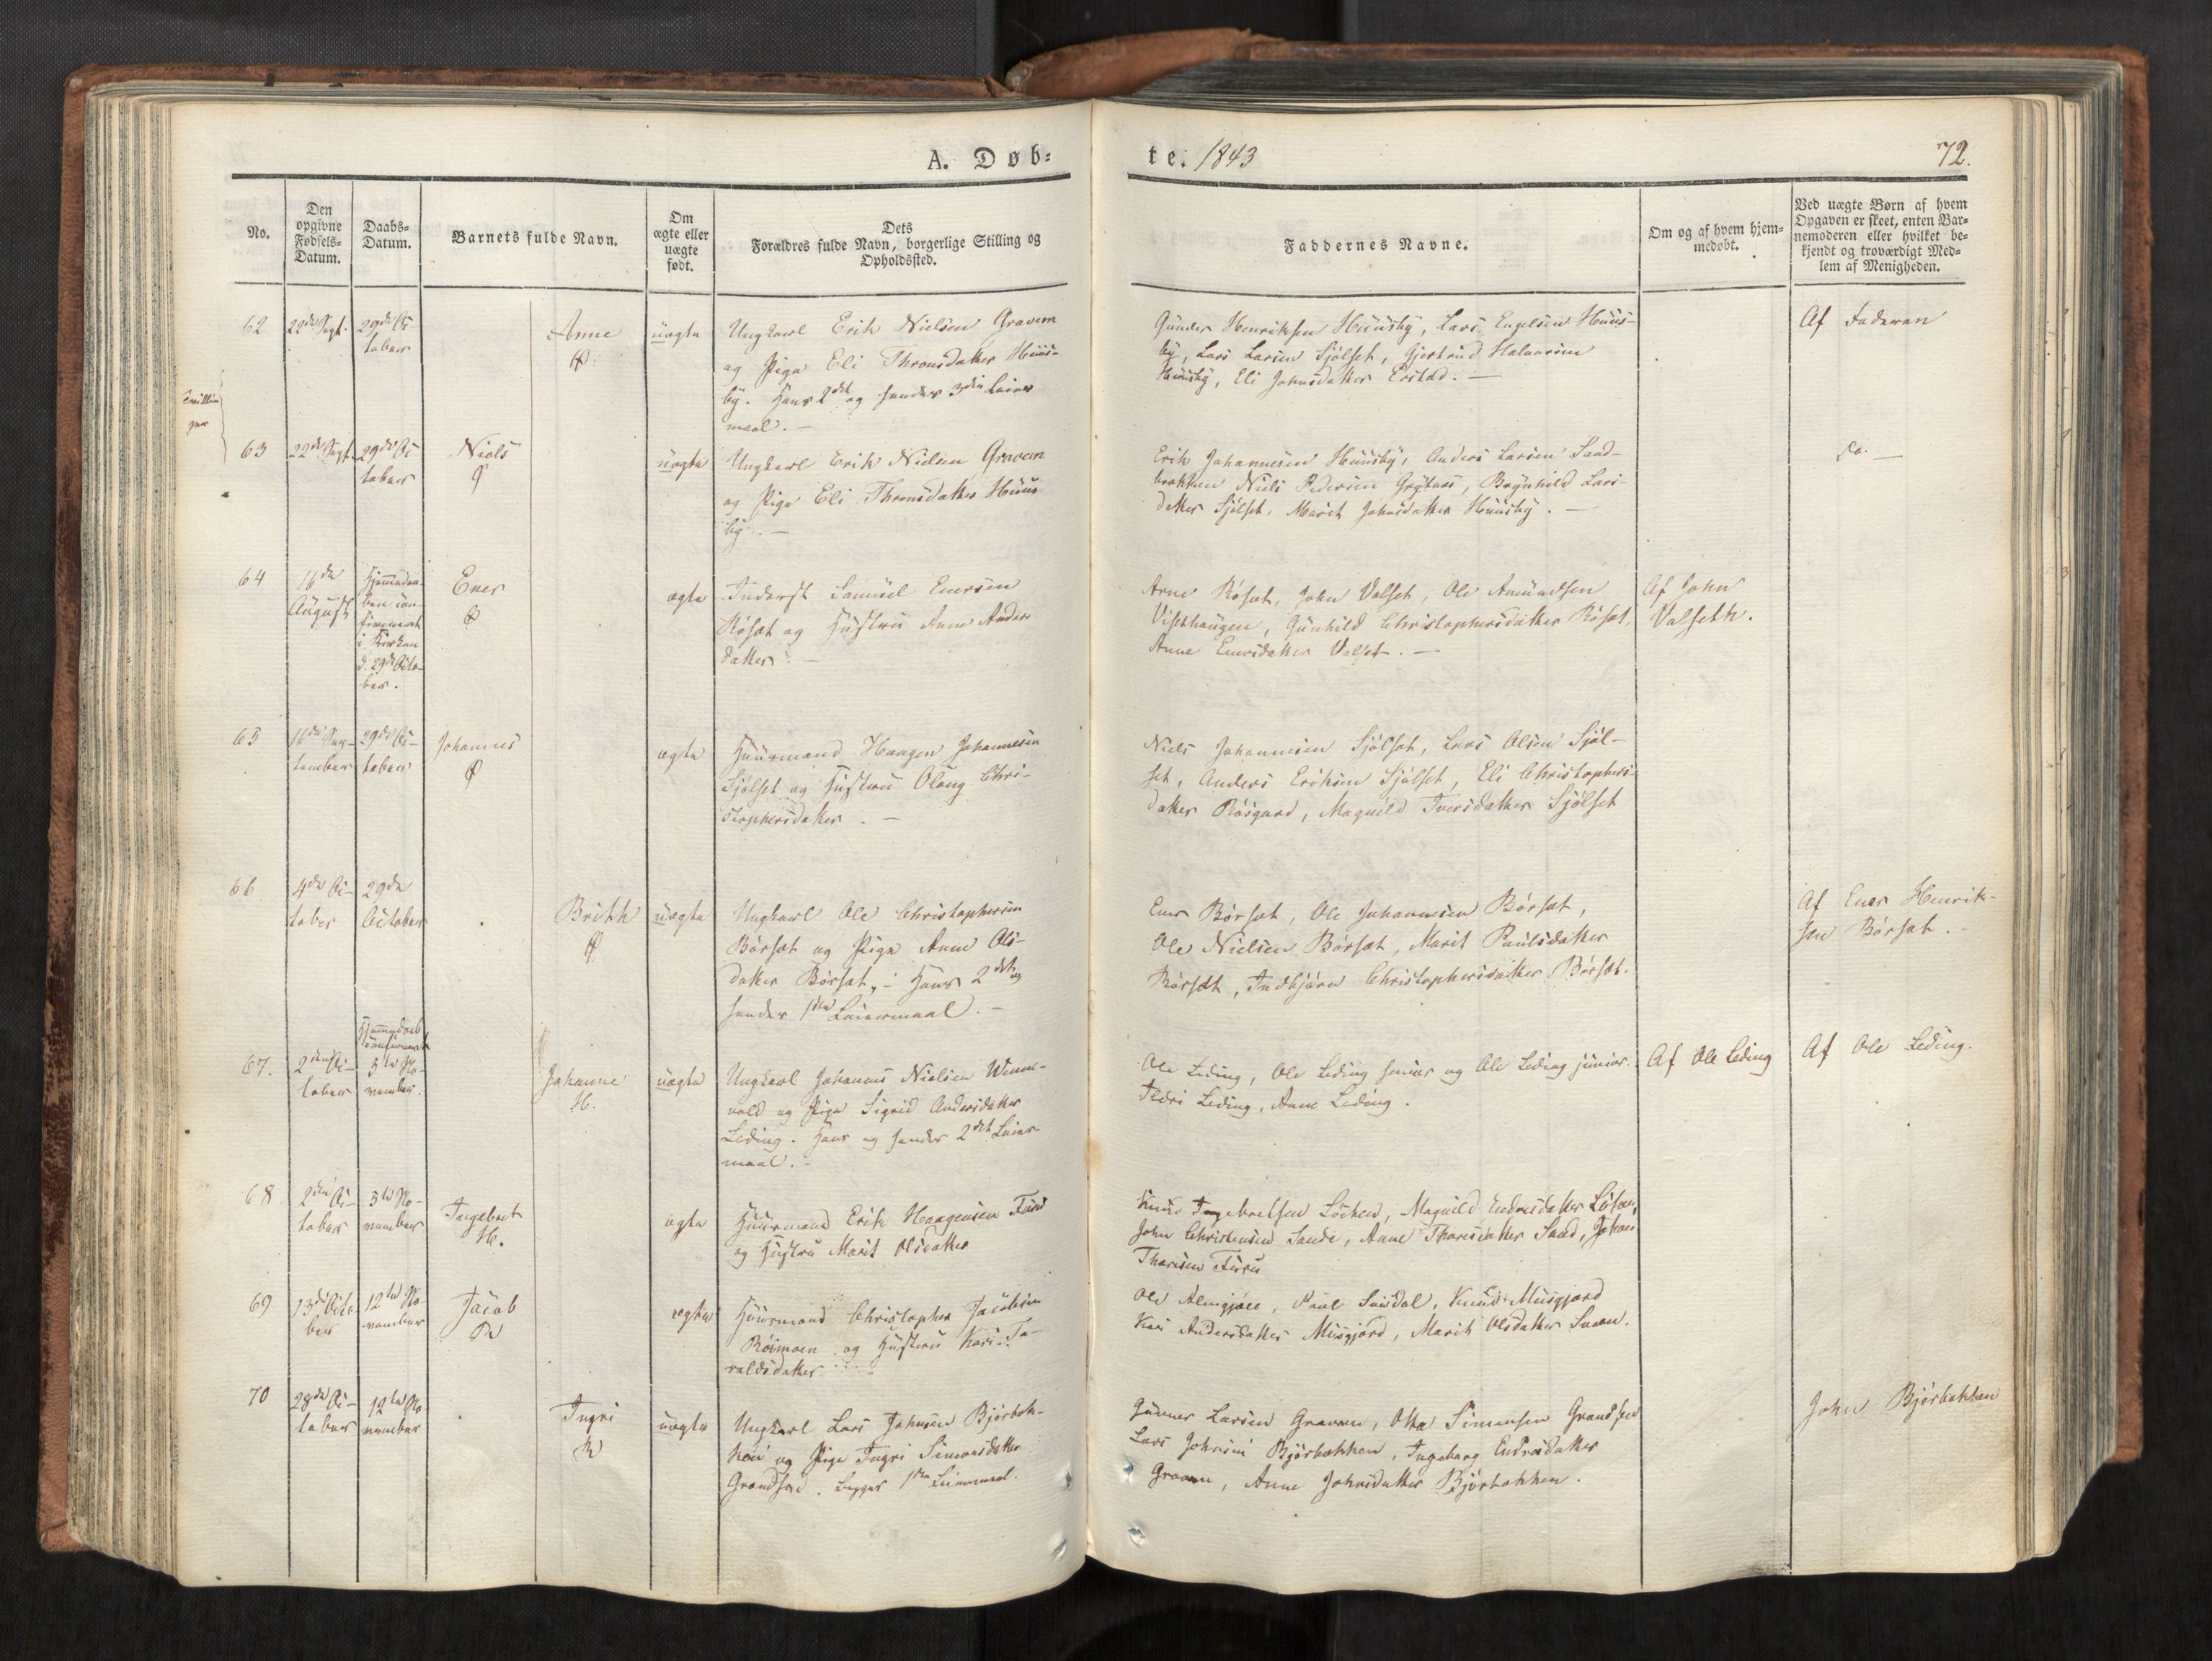 A. Døb=
te. 1843
72.
No.
Den opgivne Fødsels= Datum.
Daabs= Datum.
Barnets fulde Navn.
Om ægte eller uægte født.
Dets Forældres fulde Navn, borgerlige Stilling og Opholdssted.
Faddernes Navne.
Om og af hvem hjem= medøbt.
Ved uægte Børn af hvem Opgaven er skeet, enten Bar= nemoderen eller hvilket be= kjendt og troværdigt Med= lem af Menigheden.
62
22de Sept.
29de Oc-
tober
Anne
uægte
Ungkarl Erik Nielsen Gravem
og Pige Eli Thronsdatter Huus-
by. Hans 2det og hendes 3die Leier
maal. —
Gunder Henriksen Huusby, Lars Engelsen Huus-
by, Lars Larsen Sjølset, Gjertrud Halvorsen
Huusby, Eli Johnsdatter Erstad. —
Af Faderen
Tvillin
ger
63
22de Sept.
29de Oc
tober
Niels
uægte
Ungkarl Erik Nielsen Gravem
og Pige Eli Thronsdatter Huus-
by. —
Erik Johannesen Huusby, Anders Larsen Sand-
brekken Niels Pedersen, Brynhild Lars-
datter Sjølset, Marit Johnsdatter Huusby. —
do. —
64
16de
August
Hjemmedaa-
ben con-
firmeret
i Kirken
d. 29de Octo-
ber.
Ener
ægte
Inderst Samuel Enersen
Røset og Hustru Anne Anders
datter. —
Arne Røset, John Valset, Ole Amundsen
Visthaugen, Gunhild Christophersdatter Røset,
Anne Enersdatter Valset. —
Af John
Valseth.
65
16de Sep-
tember
29de Oc-
tober
Johannes
ægte
Huusmand Haagen Johannesen
Sjølset og Hustru Olaug Chri-
stophersdatter. —
Niels Johannesen Sjølset, Lars Olsen Sjøl-
set, Anders Eriksen Sjølset, Eli Christophers-
datter Røsgard, Magnild Iversdatter Sjølset
66
4de Oc-
tober
29de
October
Brith
uægte
Ungkarl Ole Christophersen
Børset og Pige Anne Ols-
datter Børset, - Hans 2det og
hendes 1ste Leiermaal. -
Ener Børset, Ole Johannesen Børset,
Ole Nielsen Børset, Marit Paulsdatter
Børset, Indbjørn Christophersdatter Børset.
Af Ener Henrik-
sen Børset. -
67.
2den Oc-
tober
Hjemmedaab
confirmeret
5te No-
vember.
Johanne
H.
uægte
Ungkarl Johannes Nielsen Winne-
vold og Pige Sigrid Andersdatter
Leding. Hans og hendes 2det Leier-
maal. -
Ole Leding, Ole Leding senior og Ole Leding junior.
Leding, Anne Leding.
Af Ole Leding
Af Ole Leding.
68
2den Oc-
tober
5te No-
vember
Ingebret
H.
ægte
Huusmand Erik Haagensen Furu
og Hustru Marit Olsdatter
Knud Ingebretsen Løkken, Magnild Endresdatter
John Christensen Sande, Anne Thoresdatter Sand, Johan
Thoresen Furu
69
13de Octo
ber
12te No-
vember
Jacob
ægte
Huusmand Christopher Jacobsen
Røimoen og Hustru Kari To-
raldsdatter
Ole Almgjære, Paul Sunddal, Knud Musgjærd
Kari Andersdatter Musgjærd, Marit Olsdatter
70
28de Oc-
tober
12te No-
vember
Ingri
uægte
Ungkarl Lars Johnsen Bjørbek-
ken og Pige Ingri Simonsdatter
Grandsæd. Begges 1ste Leiermaal.
Gunner Larsen Gravem, Otto Simonsen Grandsæd
Lars Johnsen Bjørbækken, Ingeborg Endresdatter
Gravem, Anne Johnsdatter Bjørbækken.
John Bjørbækken